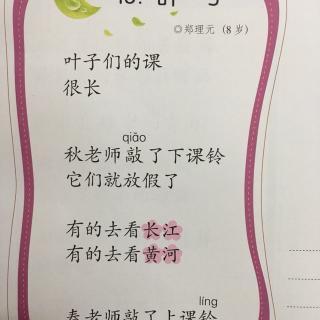 ◎郑理元（8岁）
叶子们的课
很长
qiāo
秋老师敲了下课铃
它们就放假了
有的去看长江
有的去看黄河
líng
春老师敲了上课铃